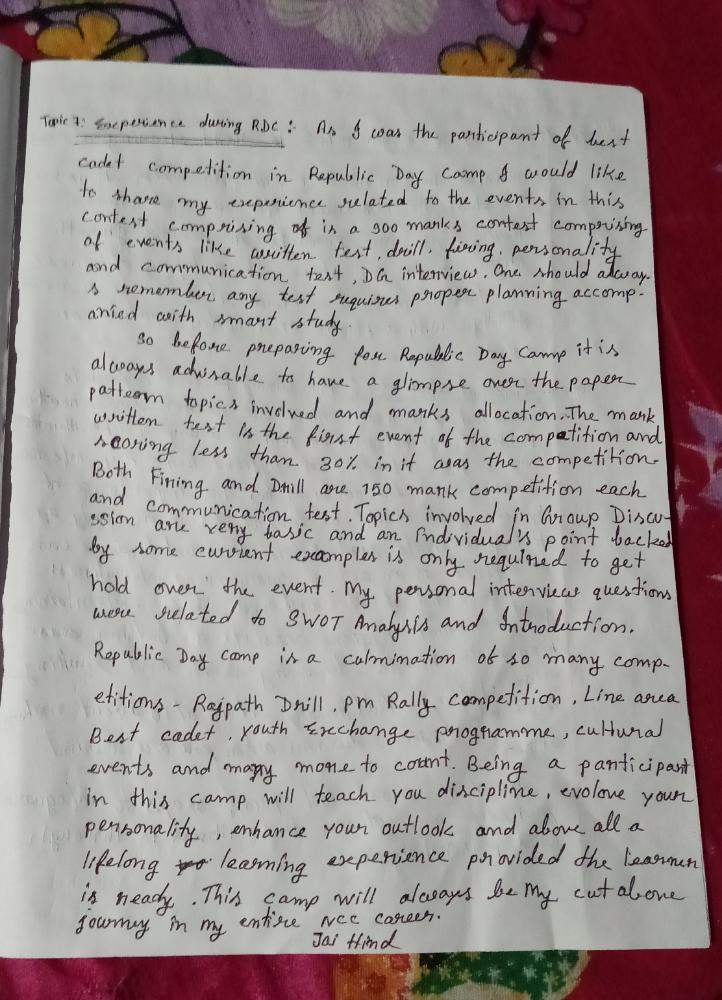 Topic 7: Experience during RDC : As I was the participant of best
cadet competition in Republic Day Camp I would like
to share my experience related to the events in this
contest comprising of is a 900 marks contest comprising
of events like written test, drill, firing, personality
and communication test, DG interview. One should alway-
s remember any test requires proper planning accomp-
anied with smart study.
So before preparing for Republic Day Camp it is
always advisable to have a glimpse over the paper
pattern topics involved and marks allocation. The mark
written test is the first event of the competition and
scoring less than 30% in it was the competition.
Both Firing and Drill are 150 mark competition each
and communication test. Topics involved in Group Discu-
ssion are very basic and an Individual's point backed
by some current examples is only required to get
hold over the event. My personal interview questions
were related to SWOT Analysis and Introduction.
Republic Day Camp is a culmination of so many comp-
etitions - Rajpath Drill, PM Rally competition, Line area
Best cadet, youth Exchange programme, cultural
events and many more to count. Being a participant
in this camp will teach you discipline, evolove your
personality, enhance your outlook and above all a
lifelong learning experience provided the learner
is ready. This camp will always be my cut above
journey in my entire NCC career.
Jai Hind